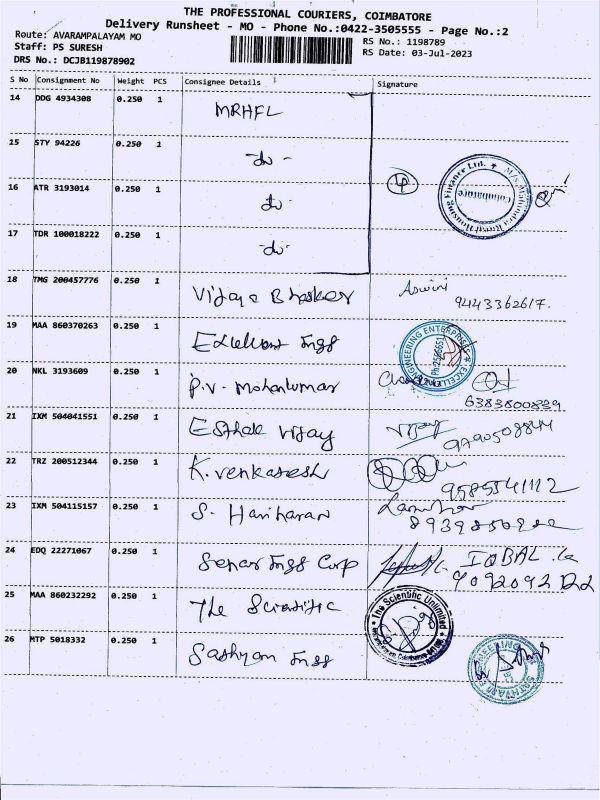 THE PROFESSIONAL COURIERS, COIMBATORE
Delivery Runsheet - MO - Phone No.:0422-3505555 - Page No.:2
Route: AVARAMPALAYAM MO
RS No.: 1198789
Staff: PS SURESH
RS Date: 03-Jul-2023
DRS No.: DCJB119878902
S No Consignment No Weight PCS Consignee Details Signature
14 DDG 4934308 0.250 1 MRHFL
15 STY 94226 0.250 1 - do -
16 ATR 3193014 0.250 1 do -
17 TDR 100018222 0.250 1 - do -
M/s.Mahindra Rural Housing Finance Ltd.
Coimbatore
18 TMG 200457776 0.250 1 Vijaya Bhasker Aswini
9443362617.
19 MAA 860370263 0.250 1 Excellent Engg
EXCELLENT ENGINEERING ENTERPRISES
20 NKL 3193609 0.250 1 P.V. Mohankumar
6383800839
21 IXM 504041551 0.250 1 Esthak Vijay Vijay
22 TRZ 200512344 0.250 1 K. Venkatesh
9585541112
23 IXM 504115157 0.250 1 S. Hariharan
24 EDQ 22271067 0.250 1 Engg Corp IQBAL
25 MAA 860232292 0.250 1 The Scientific
The Scientific Unlimited
26 MTP 5018332 0.250 1 Sathyam Engg
SATHYAM ENGINEERING